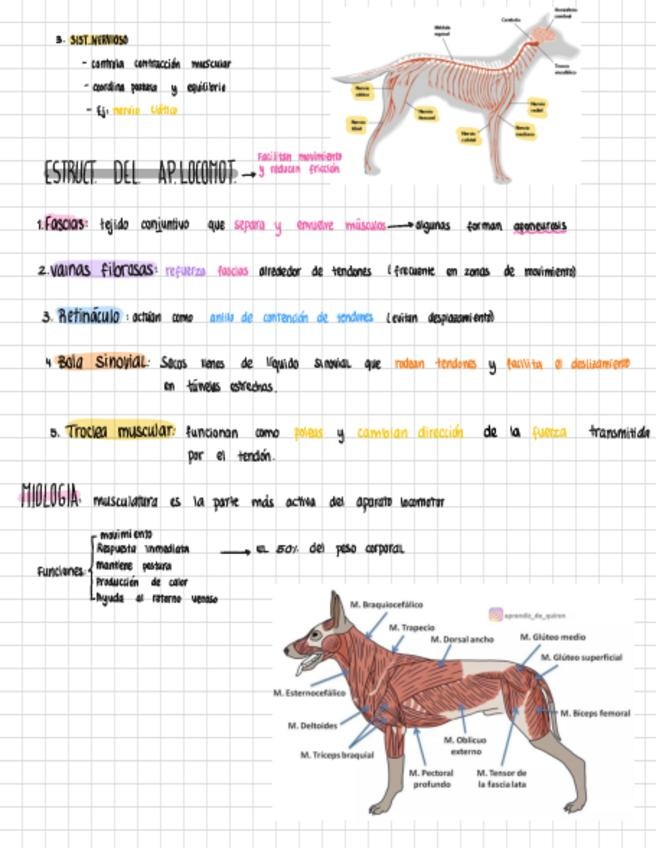 3. SIST. NERVIOSO
- controla contracción muscular
- coordina postura y equilibrio
- Ej: nervio ciático
Médula espinal
Cerebelo
Hemisferio cerebral
Tronco encefálico
Nervio ciático
Nervio femoral
Nervio tibial
Nervio radial
Nervio mediano
Nervio cubital
ESTRUCT. DEL AP. LOCOMOT. → Facilitan movimiento
y reducen fricción
1. Fascias: tejido conjuntivo que separa y envuelve músculos → algunas forman aponeurosis
2. Vainas fibrosas: refuerza fascias alrededor de tendones (frecuente en zonas de movimiento)
3. Retináculo: actúan como anillo de contención de tendones (evitan desplazamiento)
4 Bolsa Sinovial: Sacos llenos de líquido sinovial que rodean tendones y facilita el deslizamiento
en túneles estrechos.
5. Troclea muscular: funcionan como poleas y cambian dirección de la fuerza transmitida
por el tendón.
MIOLOGIA: musculatura es la parte más activa del aparato locomotor
Funciones:
- movimiento
Respuesta inmediata → EL 50% del peso corporal
mantiene postura
Producción de calor
- Ayuda al retorno venoso
aprendiz_de_quiron
M. Braquiocefálico
M. Trapecio
M. Dorsal ancho
M. Glúteo medio
M. Glúteo superficial
M. Esternocefálico
M. Deltoides
M. Tríceps braquial
M. Pectoral profundo
M. Oblicuo externo
M. Tensor de la fascia lata
M. Bíceps femoral